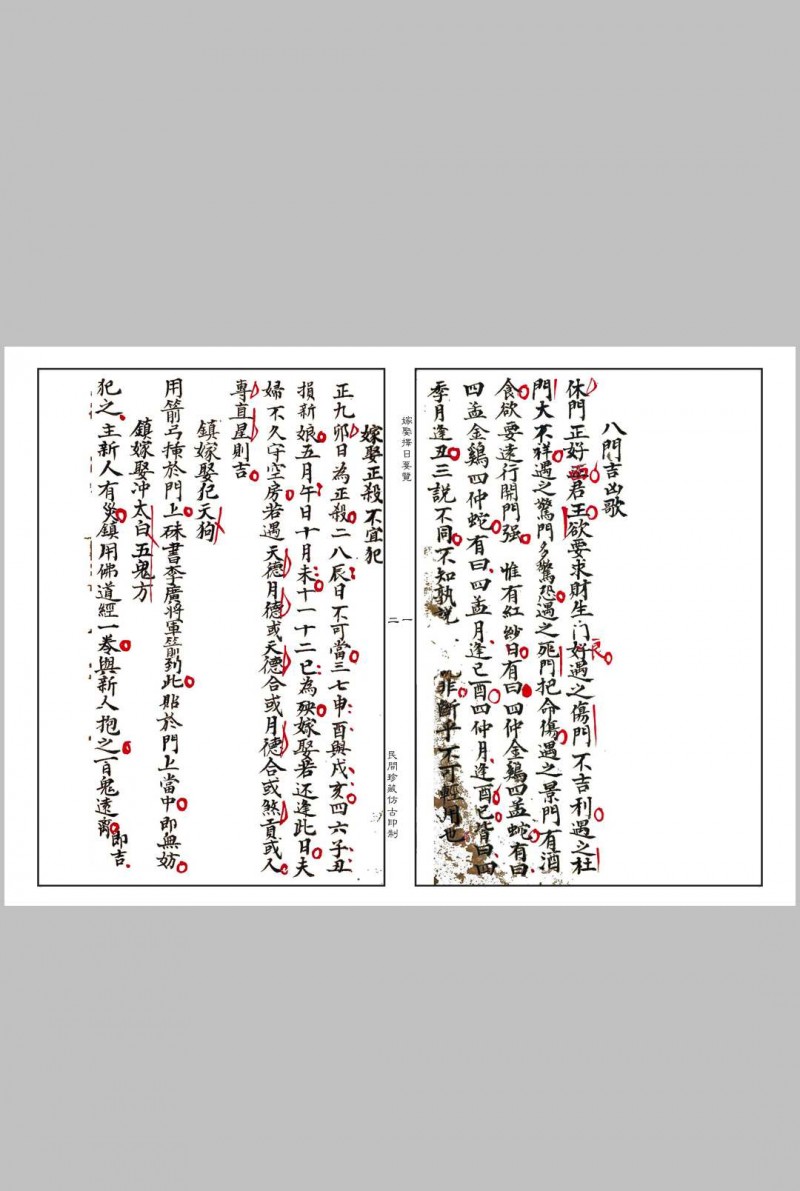 八門吉凶歌
休門正好面君王欲要求財生门好良遇之傷門不吉利遇之杜
門大不祥遇之驚門多驚恐遇之死門把命傷遇之景門有酒
食欲要遠行開門强惟有紅紗日有曰四仲金鷄四孟蛇有曰
四孟金鷄四仲蛇有曰四孟月逢巳酉四仲月逢酉巳皆曰四
季月逢丑三說不同不知孰說非斷乎不可輕用也
嫁娶擇日要覽
一
二
民間珍藏仿古印制
嫁娶正殺不宜犯
正九卯日為正殺二八辰日不可當三七申酉與戌亥四六子丑
損新娘五月午日十月未十一十二巳為殃嫁娶若还逢此日夫
婦不久守空房若遇天德月德或天德合或月德合或煞貢或人
專直星則吉
鎮嫁娶犯天狗
用箭弓挿於門上硃書李廣將軍箭到此貼於門上當中即無妨
鎮嫁娶冲太白五鬼方
犯之主新人有災鎮用佛道經一卷與新人抱之百鬼遠離即吉